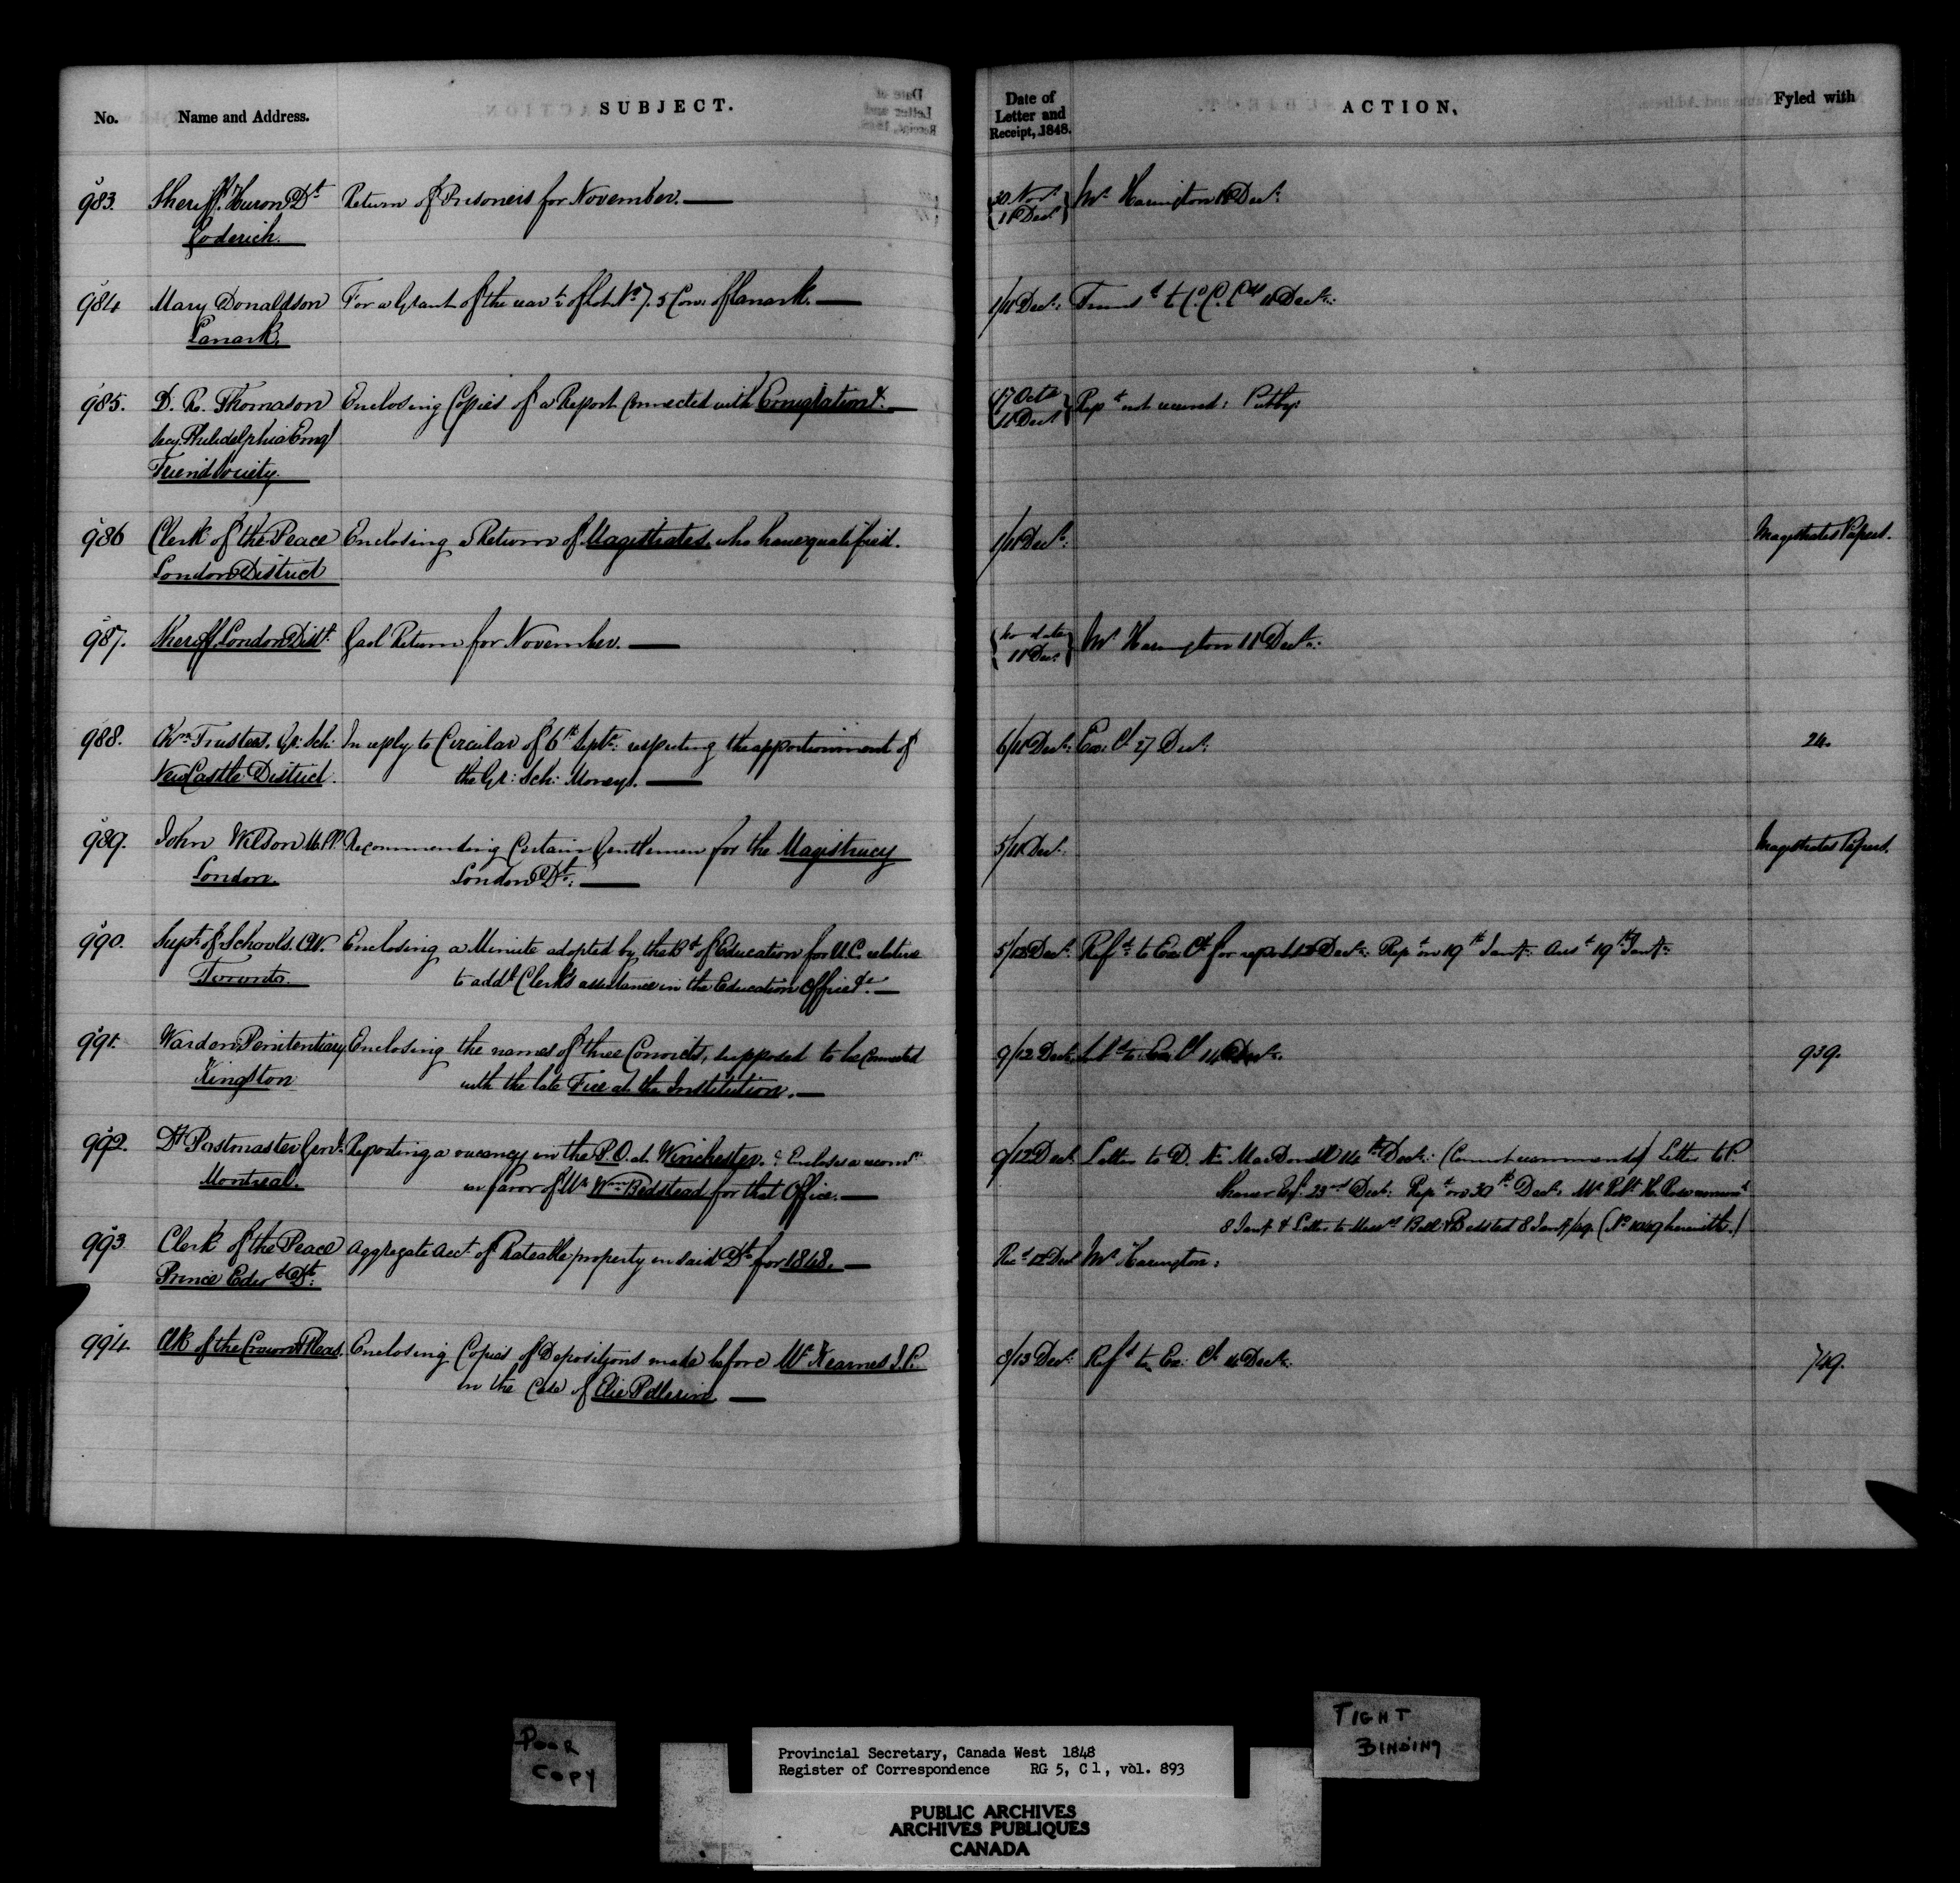 No. Name and Address. SUBJECT. Date of Letter and Receipt, 1848. ACTION, Fyled with
983. Sheriff. Huron Dt Return of Prisoners for November. — 30 Novr Mr Harington 11 Decr:
Goderich. 11 Decr
984 Mary Donaldson For a Grant of the of Lot No 7. 5 Con: of Lanark. — 1/11 Decr: to C. C. 11 Decr:
Lanark.
985. D. R. Thomason Enclosing Copies of a Report Connected with Emigration &c. — 17 Octr Rept not received: Put by:
Secy. Philadelphia Emgt 11 Decr
Friend Society.
986 Clerk of the Peace Enclosing a Return of Magistrates who have qualified. 1/11 Decr: Magistrates Papers.
London District
987. Sheriff, London Distt. Gaol Return for November. — no date Mr Harington 11 Decr:
11 Decr
988. Trustees. Gr: Sch: In reply to Circular of 6th Septr: respecting the apportionment of 6/11 Decr: Ex: Cl 27 Decr: 24.
NewCastle District. the Gr: Sch: Moneys. —
989. John Wilson M.P.P. Recommending Certain Gentlemen for the Magistracy 5/11 Decr: Magistrates Papers.
London. London Dt: —
990. Supt. of Schools. C.W. Enclosing a Minute adopted by the Bd of Education for U.C. relative 5/12 Decr: Refd to Ex: Cl for report 12 Decr: Rep on 19th Jany: Ansd 19th Jany:
Toronto. to addl Clerk's assistance in the Education Office &c —
991. Warden Penitentiary Enclosing the names of three Convicts, supposed to be Connected 9/12 Decr: to Ex: Cl 14 Decr: 939.
Kingston with the late Fire at the Institution. —
992. Dt Postmaster Genl: Reporting a vacancy in the P.O. at Winchester. & Encloses a recomn 9/12 Decr Letter to D. Æ MacDonell 14th Decr: (Cannot recommend) Letter to P.
Montreal. in favor of Mr Wm Bedstead for that Office. — Esq: 23rd Decr: Rept on 30th Decr: Mr Robt H. Rose
8 Jany & Letter to Messrs Bell & Bedsted 8 Jany/49 (No 1049 herewith.)
993 Clerk of the Peace Aggregate Acct. of Rateable property in said Dt. for 1848. — Recd 12 Decr Mr Harington:
Prince Edwd Dt:
994. Clk of the Crown & Pleas. Enclosing Copies of Depositions made before Mr Kearnes J.P. 8/13 Decr: Refd to Ex: Cl 14 Decr: 749.
in the Case of Elie Pellerin —
POOR
COPY
TIGHT
BINDING
Provincial Secretary, Canada West 1848
Register of Correspondence RG 5, C 1, vol. 893
PUBLIC ARCHIVES
ARCHIVES PUBLIQUES
CANADA